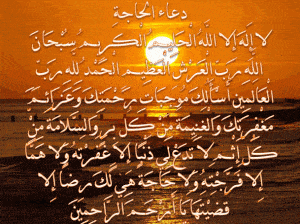 دعاء الحاجة
لا إله إلا الله الحليم الكريم سبحان
الله رب العرش العظيم الحمد لله رب
العالمين أسألك موجبات رحمتك وعزائم
مغفرتك والغنيمة من كل بر والسلامة من
كل إثم لا تدع لي ذنبا إلا غفرته ولا هما
إلا فرجته ولا حاجة هي لك رضا إلا
قضيتها يا أرحم الراحمين